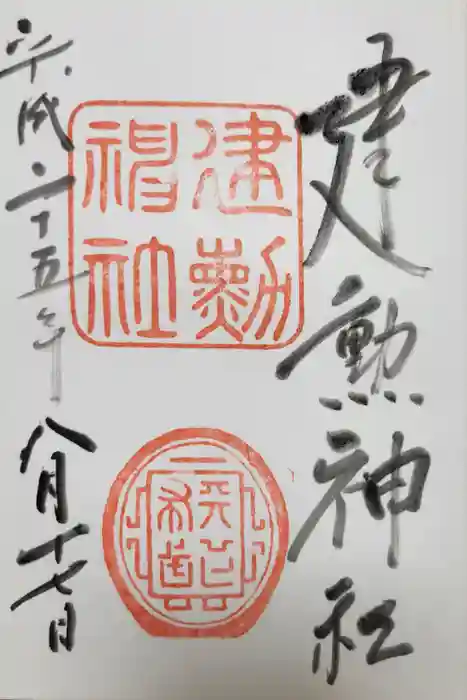 建勲神社
建勲
神社
天下布武
平成二十五年
八月十七日